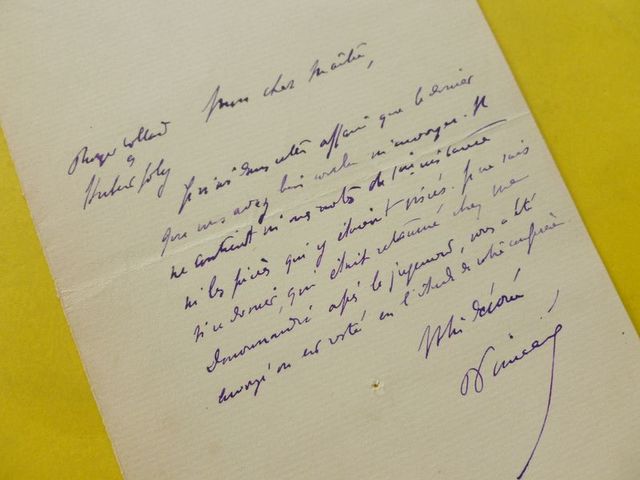 Mon cher Maître,
Royer Collard
à
Hubert Joly
Je n'ai dans cette affaire que le dernier
que vous avez bien voulu m'envoyer. Il
ne contient ni nos notes de
ni les pièces qui y étaient visées. Je ne sais
si ce dernier, qui était retourné chez ma
après le jugement, vous a été
envoyé ou est resté en l'étude de votre confrère.
Votre dévoué